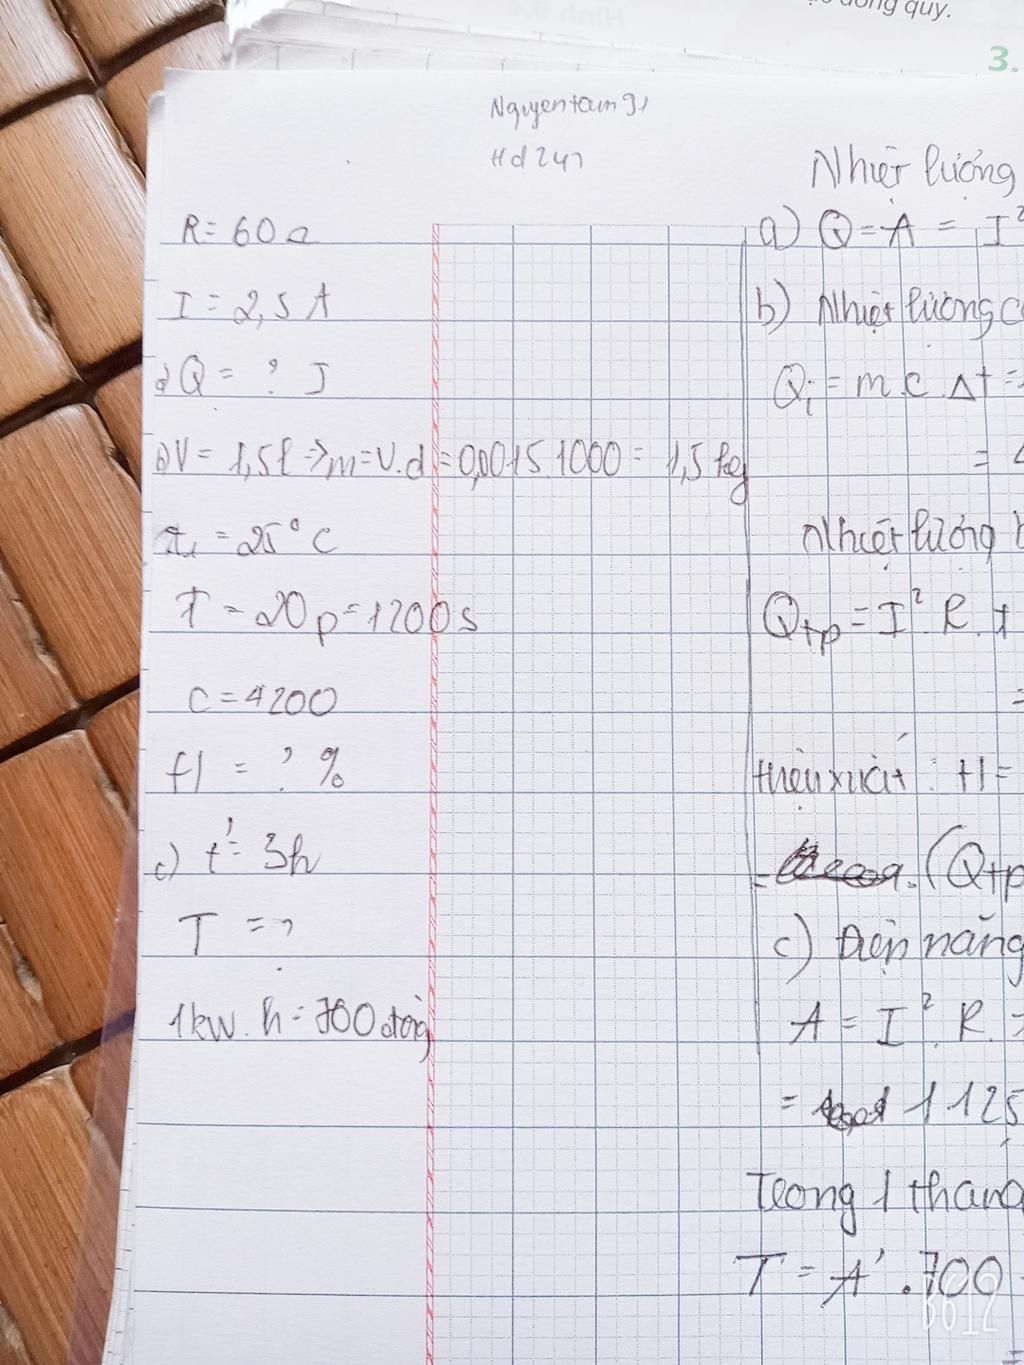 quy.
3.
Nguyentam91
Hd247
R = 60Ω
I = 2,5 A
a) Q = ? J
b) V = 1,5l => m = V.d = 0,0015.1000 = 1,5 kg
t₁ = 25°C
t = 20p = 1200s
c = 4200
H = ? %
c) t' = 3h
T = ?
1kw.h = 700 đồng
Nhiệt lượng
a) Q = A = I²
b) Nhiệt lượng
Qᵢ = m.c.Δt =
=
Nhiệt lượng
Qtp = I².R.t
=
Hiệu xuất : H =
= (Qtp
c) Điện năng
A = I².R.
= 1125
Trong 1 tháng
T = A'.700
B612
=